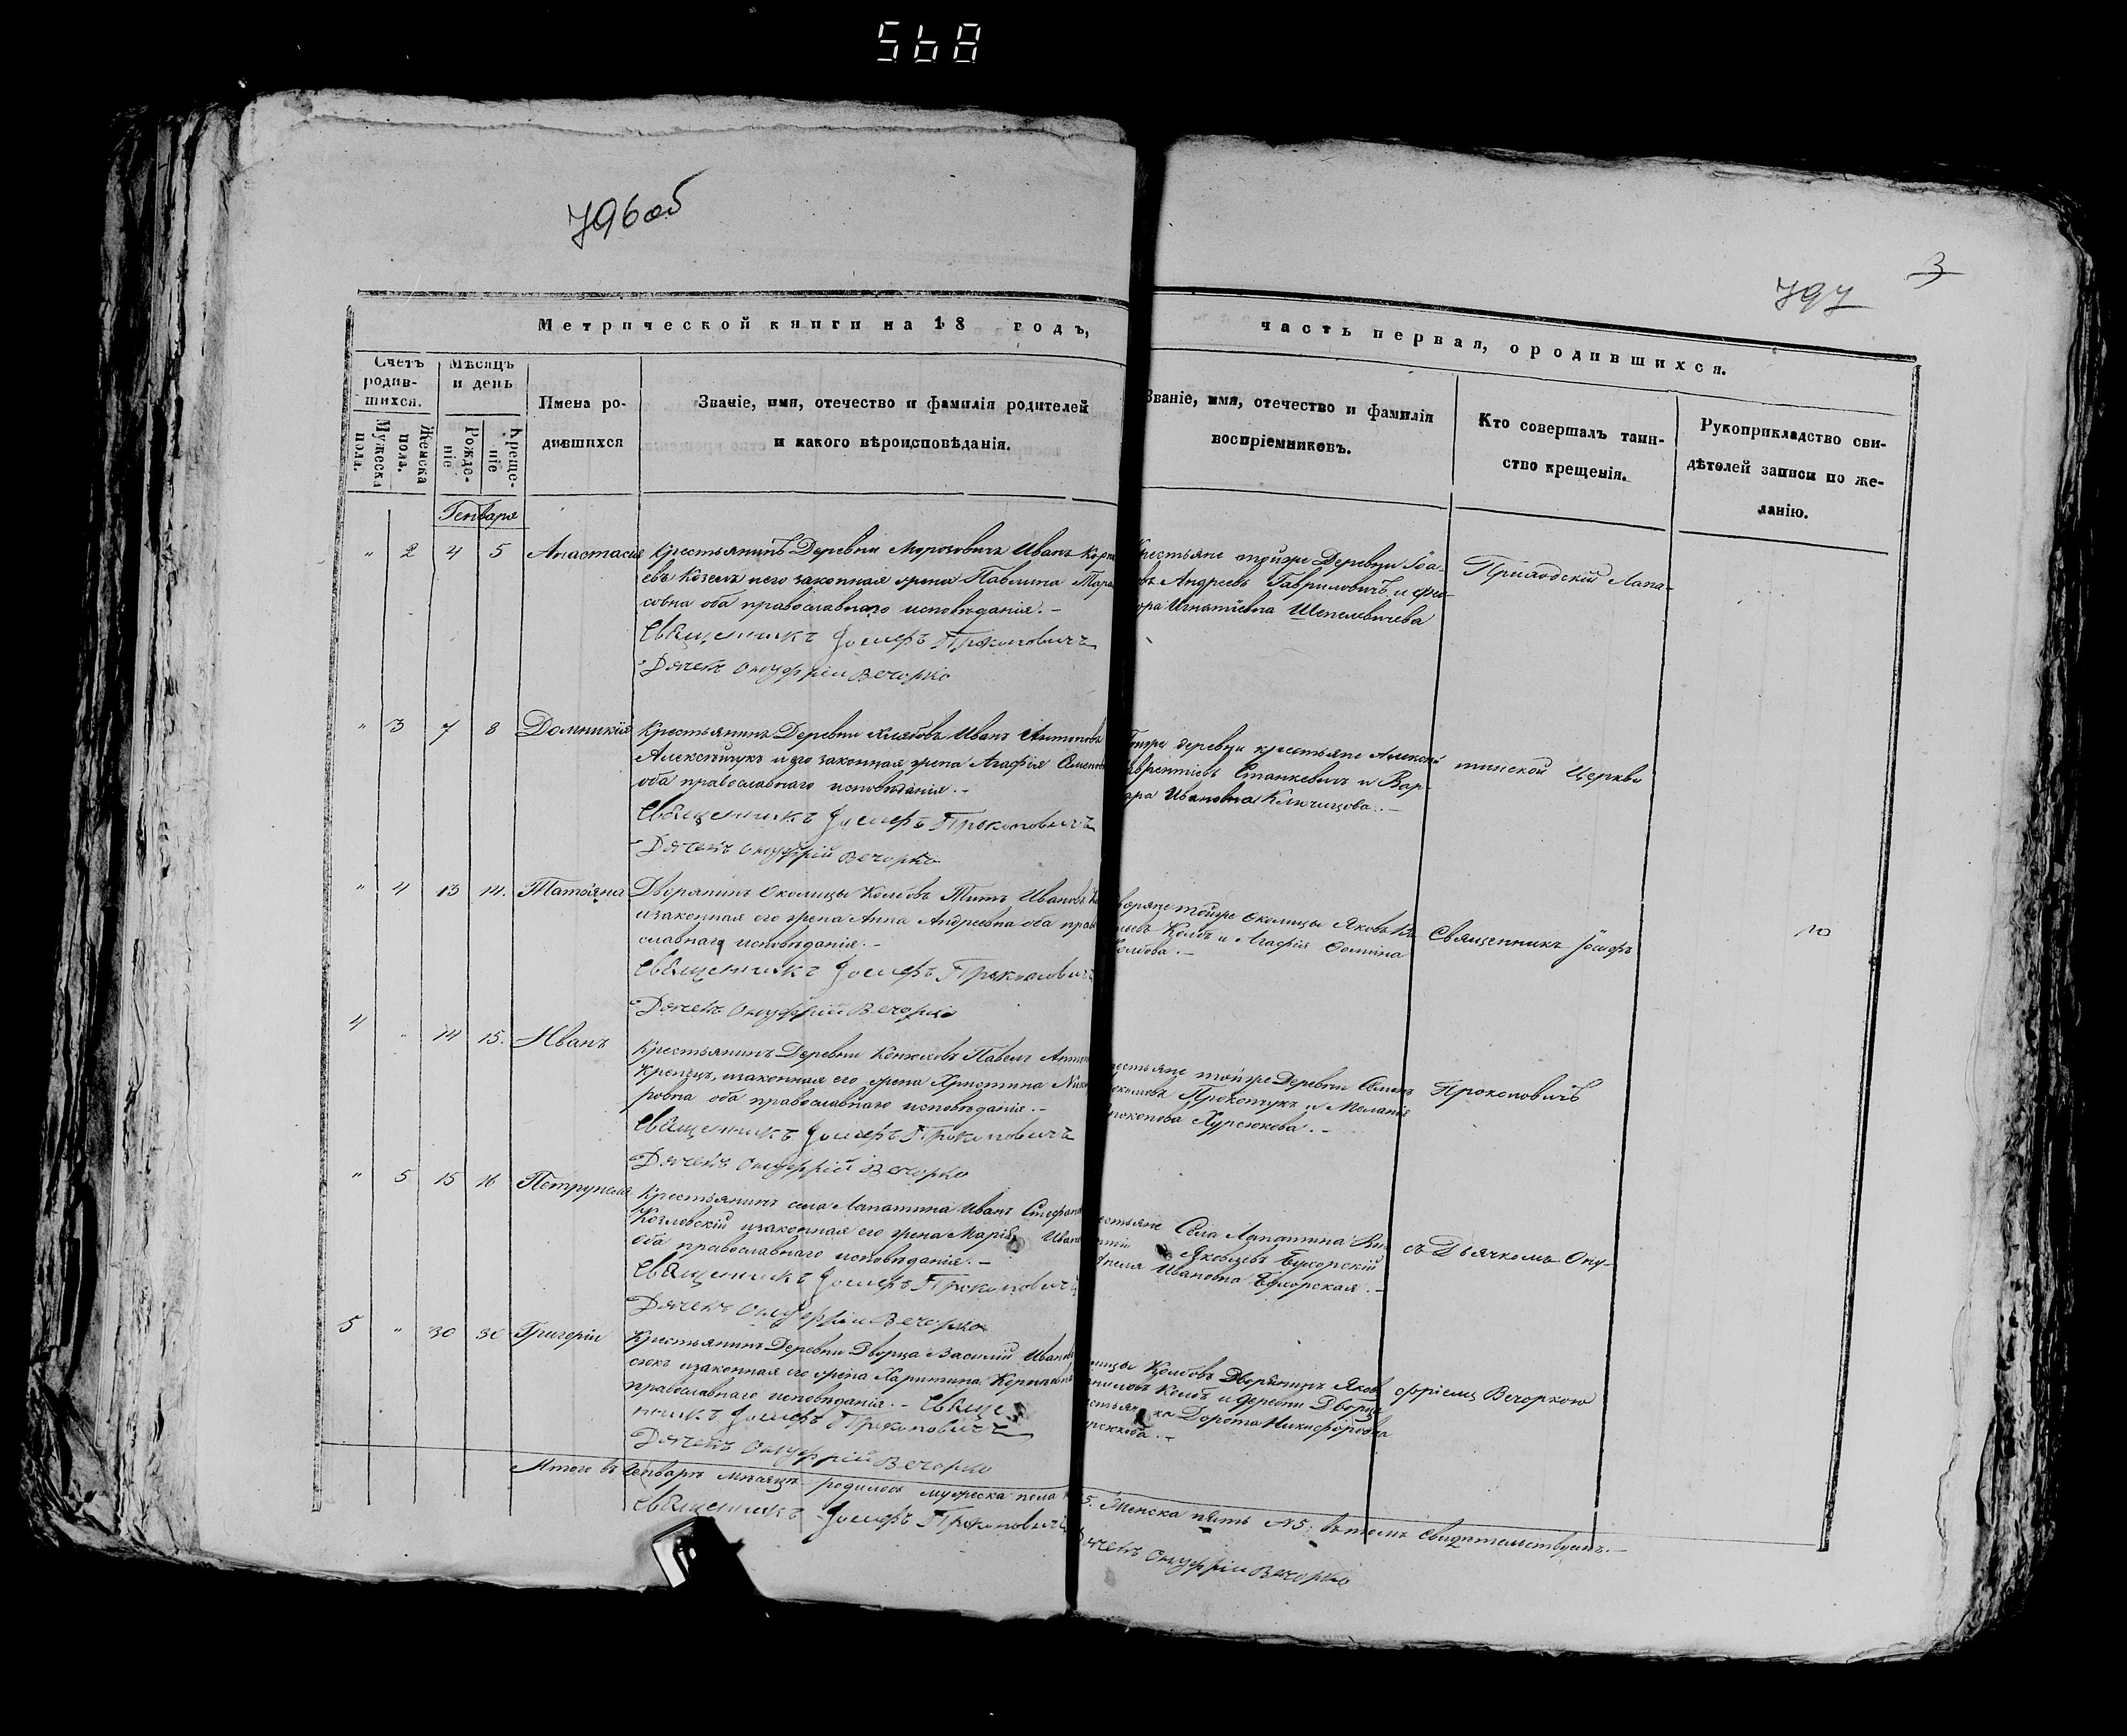 568
796 об
797
3
Метрической книги на 18 годъ,
часть первая, о родившихся.
Счетъ родив-
шихся.
Мужеска пола.
Женска пола.
Мѣсяцъ и день
Рожде-
ніе
Креще-
ніе
Имена ро-
дившихся
Званіе, имя, отечество и фамилія родителей
и какого вѣроисповѣданія.
Званіе, имя, отечество и фамилія
воспріемниковъ.
Кто совершалъ таин-
ство крещенія.
Рукоприкладство сви-
дѣтелей записи по же-
ланію.
Генваря
" 2 4 5 Анастасія
Крестьянинъ Деревни Морозовичъ Иванъ
евъ Козелъ и его законная жена Павлина Тара
совна оба православнаго исповѣданія.-
Священникъ Іосифъ Прокоповичъ
Дячекъ Онуфрій Вечорко
Крестьяне тойже Деревни
Андреевъ Гавриловичъ и
Игнатіевна Шепелевичева
Приходскій Лапа-
" 3 7 8 Домникія
Крестьянинъ Деревни Иванъ Антоновъ
Алексѣйчукъ и его законная жена Агафія
оба православнаго исповѣданія.-
Священникъ Іосифъ Прокоповичъ
Дячекъ Онуфрій Вечорко
Тойже деревни крестьяне Алексѣй
Лаврентіевъ Станкевичъ и Вар-
вара Ивановна
тинской Церкви
" 4 13 14. Татьяна
Дворянинъ Околицы Колбовъ Титъ Ивановъ
и законная его жена Анна Андреевна оба право
славнаго исповѣданія.-
Священникъ Іосифъ Прокоповичъ
Дячекъ Онуфрій Вечорко
Дворяне тойже околицы Яковъ
Колбъ и Агафія Фомина
Колбова.-
Священникъ Іосифъ
10
4 " 14 15. Иванъ
Крестьянинъ Деревни Конюховъ Павелъ
и законная его жена Христина
оба православнаго исповѣданія.-
Священникъ Іосифъ Прокоповичъ
Дячекъ Онуфрій Вечорко
тойже Деревни
Прокопчукъ и Меланія
Прокопова Хурсюкова.-
Прокоповичъ
" 5 15 16
Крестьянинъ села Лапатина Иванъ
Козловскій и законная его жена Марія
оба православнаго исповѣданія.-
Священникъ Іосифъ Прокоповичъ
Дячекъ Онуфрій Вечорко
Села Лапатина
Яковлевъ
Ивановна
съ Дьячкомъ Ону-
5 " 30 30 Григорій
Крестьянинъ Деревни Дворца Василій
и законная его жена Харитина
православнаго исповѣданія.- Свяще
нникъ Іосифъ Прокоповичъ
Дячекъ Онуфрій Вечорко
Колбовъ Дворянинъ Яковъ
Колбъ и деревни Дворца
Дорота Никифоровна
фріемъ Вечоркою
Итого въ Генварѣ мѣсяцѣ родилось мужеска пола 5. Женска пять №5; въ томъ свидѣтельствуемъ.-
Священникъ Іосифъ Прокоповичъ
Дячекъ Онуфрій Вечорко